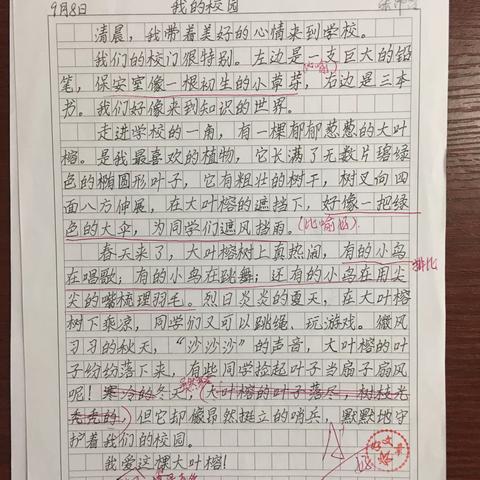 9月8日
我的校园
清晨,我带着美好的心情来到学校。
我们的校门很特别。左边是一支巨大的铅
笔,保安室像一根初生的小草芽,右边是三本
(比喻)
书。我们好像来到知识的世界。
走进学校的一角,有一棵郁郁葱葱的大叶
榕。是我最喜欢的植物,它长满了无数片碧绿
色的椭圆形叶子,它有粗壮的树干,树叉向四
面八方伸展,在大叶榕的遮挡下,好像一把绿
色的大伞,为同学们遮风挡雨。(比喻好)
春天来了,大叶榕树上真热闹,有的小鸟
在唱歌;有的小鸟在跳舞;还有的小鸟在用尖
排比
尖的嘴梳理羽毛。烈日炎炎的夏天,在大叶榕
树下乘凉,同学们又可以跳绳、玩游戏。微风
习习的秋天,“沙沙沙”的声音,大叶榕的叶
子纷纷落下来,有些同学捡起叶子当扇子扇风
呢!寒冷的冬天,(大叶榕的叶子落尽,树枝光
秃秃的,)但它却像昂然挺立的哨兵,默默地守
护着我们的校园。
我爱这棵大叶榕!